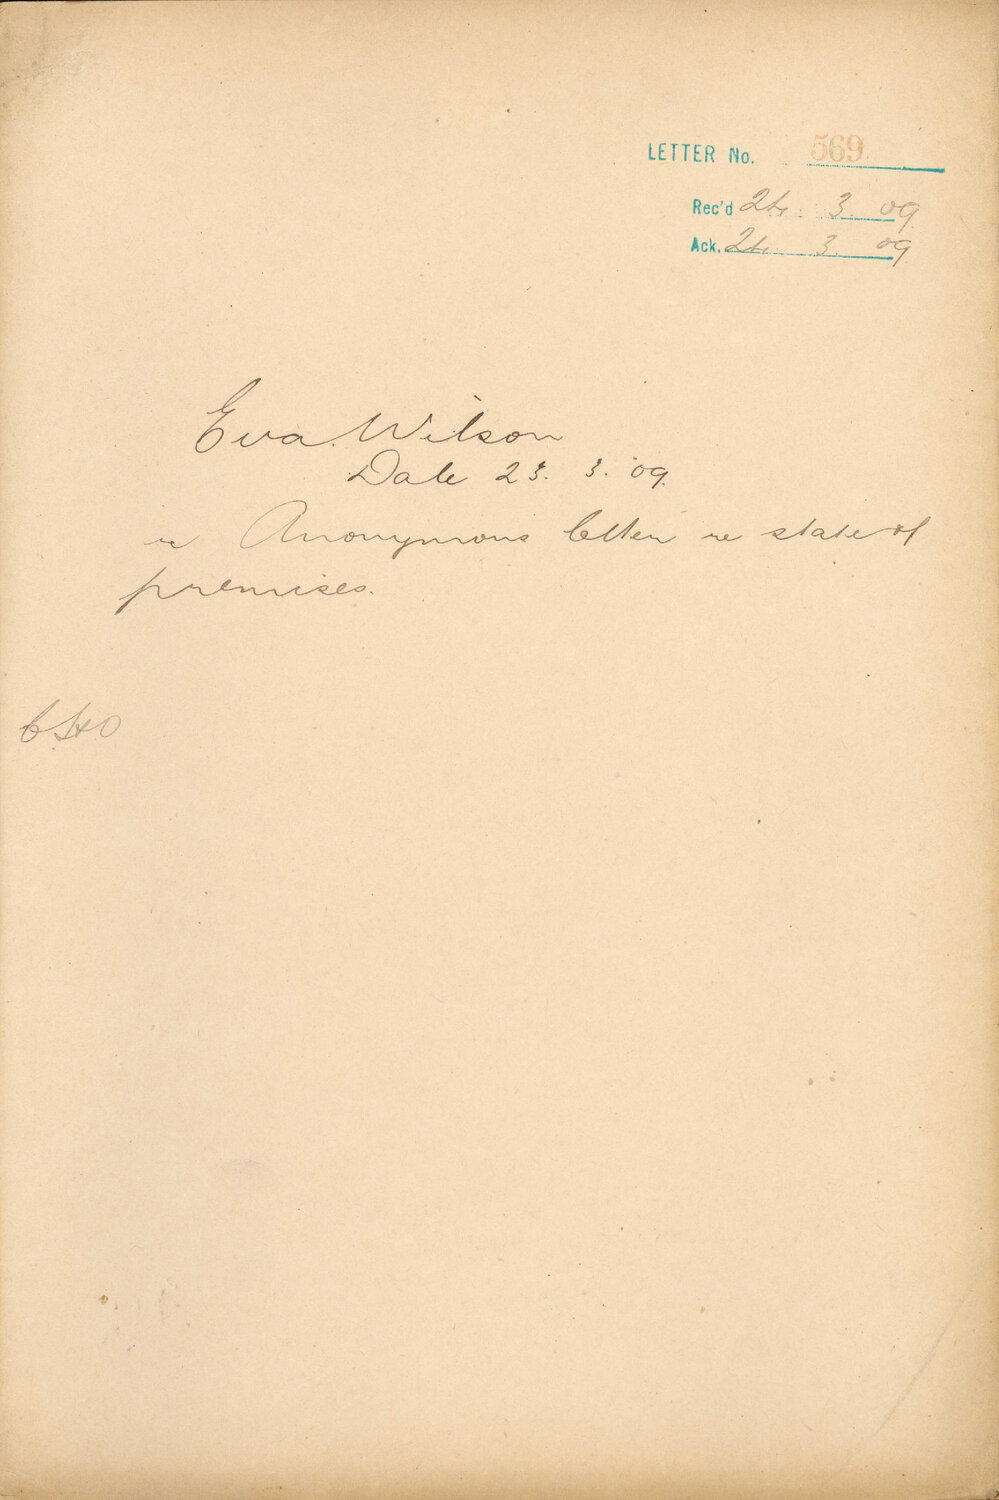 LETTER No. 569
Rec'd 24. 3. 09
Ack. 24. 3. 09
Eva Wilson
Date 23. 3. 09.
re Anonymous letter re state of
premises.
CHO